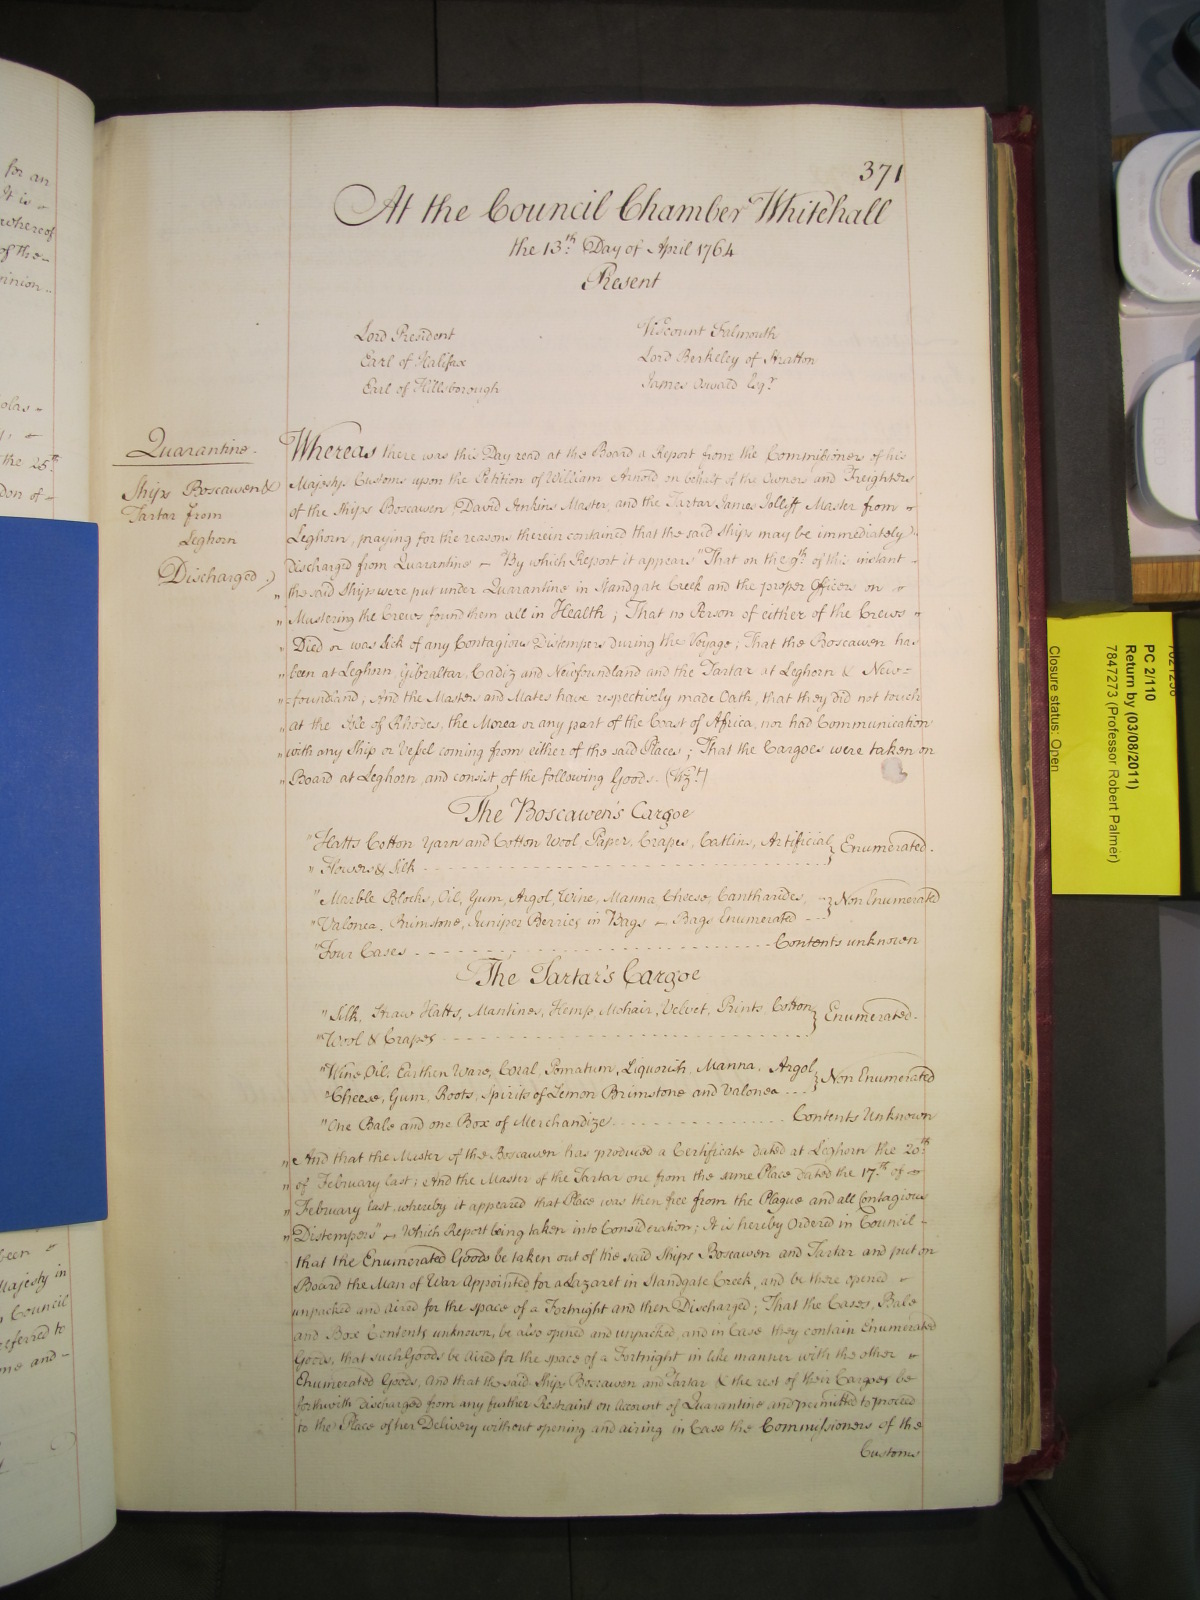 for an
It is
whereof
of the
inion
olas
the 25th
don of
been
Majesty in
Council
referred to
me and
371
At the Council Chamber Whitehall
the 13th Day of April 1764
Present
Lord President
Earl of Halifax
Earl of Hillsborough
Viscount Falmouth
Lord Berkeley of Stratton
James Oswald Esqr
Quarantine.
Ships Boscawen &
Tartar from
Leghorn
Discharged
Whereas there was this Day read at the Board a Report from the Commissioners of his
Majestys Customs upon the Petition of William Arnold on behalf of the Owners and Freighters
of the Ships Boscawen David Jenkins Master, and the Tartar James Jolliff Master from
Leghorn, praying for the reasons therein contained that the said Ships may be immediately
discharged from Quarantine – By which Report it appears "That on the 9th of this instant
" the said Ships were put under Quarantine in Standgate Creek and the proper Officers on
" Mustering the Crews found them all in Health; That no Person of either of the Crews
" Died or was Sick of any Contagious Distempers during the Voyage; That the Boscawen has
" been at Leghorn, Gibraltar, Cadiz and Newfoundland and the Tartar at Leghorn & New=
" =foundland; And the Masters and Mates have respectively made Oath, that they did not touch
" at the Isle of Rhodes, the Morea or any part of the Coast of Africa, nor had Communication
" with any Ship or Vessel coming from either of the said Places; That the Cargoes were taken on
" Board at Leghorn, and consist of the following Goods. (Vizt)
The Boscawen's Cargoe
" Hatts Cotton Yarn and Cotton Wool Paper, Crapes, Catlins, Artificial } Enumerated.
" Flowers & Silk
" Marble Blocks, Oil, Gum, Argol, Wine, Manna Cheese, Cantharides, } Non Enumerated
" Valonea. Brimstone, Juniper Berries in Bags – Bags Enumerated
" Four Cases Contents unknown
The Tartar's Cargoe
" Silk, Straw Hatts, Mantines, Hemp Mohair, Velvet, Prints, Cotton } Enumerated.
" Wool & Crapes
" Wine, Oil, Earthen Ware, Coral, Pomatum, Liquorish, Manna, Argol } Non Enumerated
" Cheese, Gum, Roots, Spirits of Lemon Brimstone and Valonea
" One Bale and one Box of Merchandize Contents Unknown
" And that the Master of the Boscawen has produced a Certificate dated at Leghorn the 20th
" of February last; And the Master of the Tartar one from the same Place dated the 17th of
" February last, whereby it appeared that Place was then free from the Plague and all Contagious
" Distempers" – Which Report being taken into Consideration; It is hereby Ordered in Council
that the Enumerated Goods be taken out of the said Ships Boscawen and Tartar and put on
Board the Man of War Appointed for a Lazaret in Standgate Creek, and be there opened
unpacked and aired for the space of a Fortnight and then Discharged; That the Cases, Bale
and Box Contents unknown, be also opened and unpacked, and in Case they contain Enumerated
Goods, that such Goods be Aired for the space of a Fortnight in like manner with the other
Enumerated Goods, And that the said Ships Boscawen and Tartar & the rest of their Cargoes be
forthwith discharged from any further Restraint on Account of Quarantine and permitted to proceed
to the Place of her Delivery without opening and airing in Case the Commissioners of the
Customs
PC 2/110
Return by (03/08/2011)
7847273 (Professor Robert Palmer)
Closure status: Open